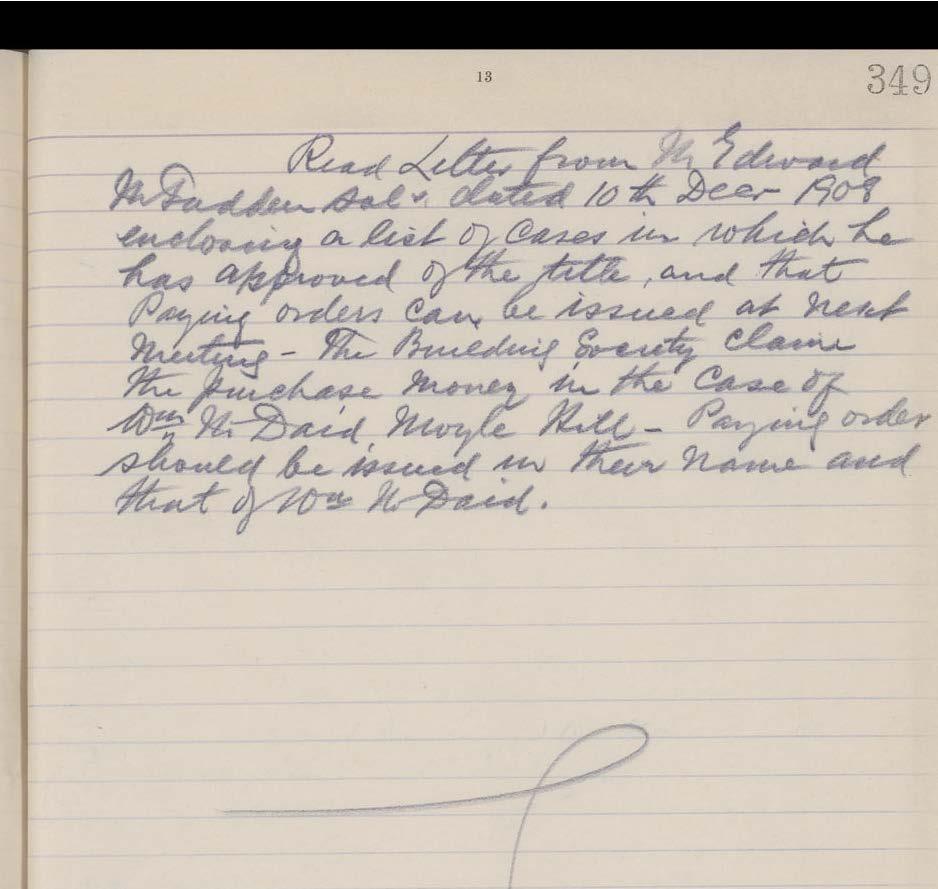 13
349
Read Letter from Mr Edward
McFadden Solr. dated 10th Decr 1908
enclosing a list of cases in which he
has approved of the title, and that
Paying orders can be issued at next
Meeting - The Building Society claim
the purchase money in the case of
Wm McDaid, Moyle Hill - Paying order
should be issued in their name and
that of Wm McDaid.